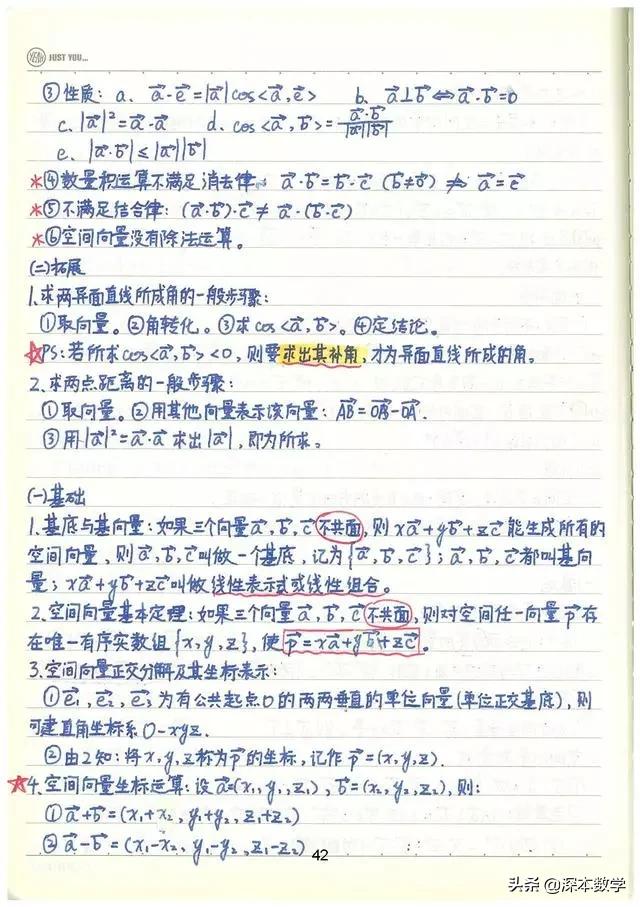 YEAH JUST YOU...
③性质: a. a⃗·e⃗=|a⃗|cos<a⃗,e⃗> b. a⃗⊥b⃗⇔a⃗·b⃗=0
c. |a⃗|²=a⃗·a⃗ d. cos<a⃗,b⃗>=a⃗·b⃗/|a⃗||b⃗|
e. |a⃗·b⃗|≤|a⃗||b⃗|
*④数量积运算不满足消去律: a⃗·b⃗=b⃗·c⃗ (b⃗≠0⃗) ⇏ a⃗=c⃗
*⑤不满足结合律: (a⃗·b⃗)·c⃗≠a⃗·(b⃗·c⃗)
*⑥空间向量没有除法运算。
(二)拓展
1.求两异面直线所成角的一般步骤:
①取向量。②角转化。③求cos<a⃗,b⃗>。④定结论。
☆PS:若所求cos<a⃗,b⃗><0,则要求出其补角,才为异面直线所成的角。
2.求两点距离的一般步骤:
①取向量。②用其他向量表示该向量: AB⃗=OB⃗-OA⃗.
③用|a⃗|²=a⃗·a⃗求出|a⃗|,即为所求。
(一)基础
1.基底与基向量:如果三个向量a⃗,b⃗,c⃗不共面,则xa⃗+yb⃗+zc⃗能生成所有的
空间向量,则a⃗,b⃗,c⃗叫做一个基底,记为{a⃗,b⃗,c⃗};a⃗,b⃗,c⃗都叫基向
量;xa⃗+yb⃗+zc⃗叫做线性表示式或线性组合。
2.空间向量基本定理:如果三个向量a⃗,b⃗,c⃗不共面,则对空间任一向量p⃗存
在唯一有序实数组{x,y,z},使p⃗=xa⃗+yb⃗+zc⃗。
3.空间向量正交分解及其坐标表示:
①e⃗₁,e⃗₂,e⃗₃为有公共起点O的两两垂直的单位向量(单位正交基底),则
可建直角坐标系O-xyz.
②由2知:将x,y,z称为p⃗的坐标,记作p⃗=(x,y,z).
☆4.空间向量坐标运算:设a⃗=(x₁,y₁,z₁),b⃗=(x₂,y₂,z₂),则:
①a⃗+b⃗=(x₁+x₂,y₁+y₂,z₁+z₂)
②a⃗-b⃗=(x₁-x₂,y₁-y₂,z₁-z₂)
42
头条@深本数学